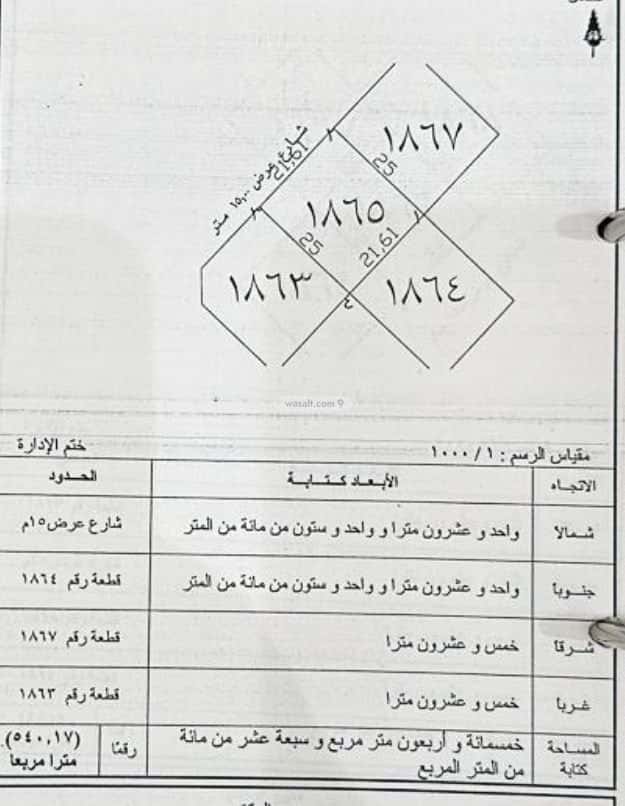 ١٨٦٧
25
شارع عرض ١٥,٠٠ متر
21,61
١٨٦٥
25
21,61
١٨٦٣
١٨٦٤
٤
wasalt.com
مقياس الرسم : ١ / ١٠٠٠ ختم الإدارة
الاتجاه الأبعاد كتابة الحدود
شمالا واحد و عشرون مترا و واحد و ستون من مائة من المتر شارع عرض١٥م
جنوبا واحد و عشرون مترا و واحد و ستون من مائة من المتر قطعة رقم ١٨٦٤
شرقا خمس و عشرون مترا قطعة رقم ١٨٦٧
غربا خمس و عشرون مترا قطعة رقم ١٨٦٣
المساحة كتابة خمسمائة و أربعون متر مربع و سبعة عشر من مائة من المتر المربع رقمًا (٥٤٠,١٧). مترا مربعا